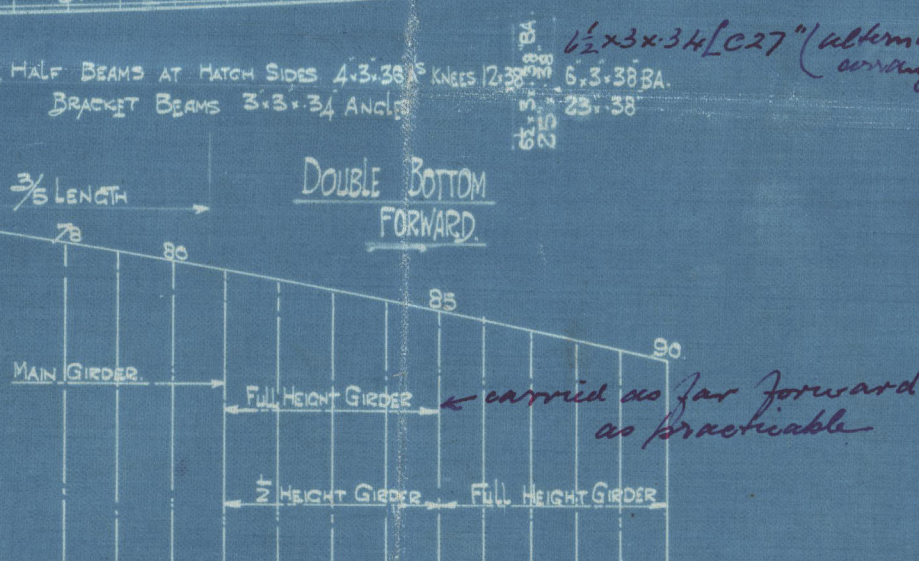 6½×3×·34[C27" (altern
HALF BEAMS AT HATCH SIDES 4"×3"×·38 A^S KNEES 12×·38 6"×3"×·38 BA.
BRACKET BEAMS 3"×3"×·34 ANGLES 23"×·38
6½×3×·38 BA
25"×·38
3/5 LENGTH
DOUBLE BOTTOM
FORWARD.
78
80
85
90
MAIN GIRDER.
FULL HEIGHT GIRDER
carried as far forward
as practicable
½ HEIGHT GIRDER
FULL HEIGHT GIRDER